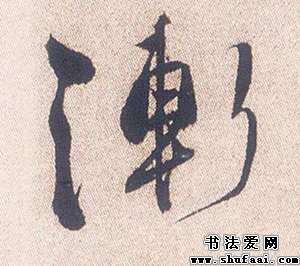 漸
书法爱网
www.shufaai.com